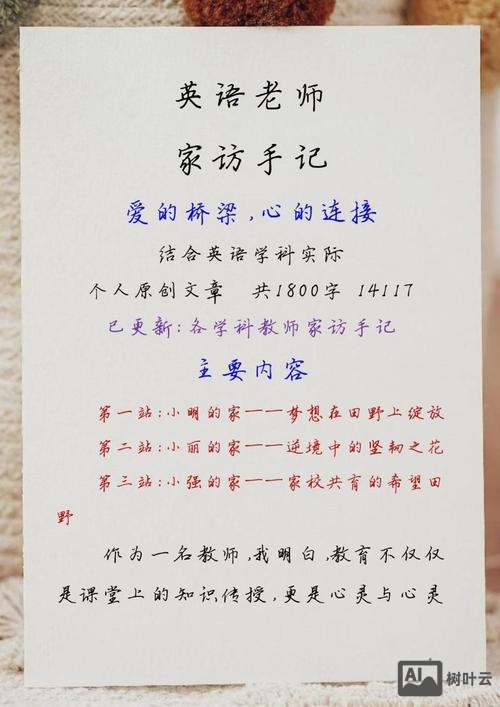 英语老师
家访手记
爱的桥梁,心的连接
结合英语学科实际
个人原创文章 共1800字 14117
已更新:各学科教师家访手记
主要内容
第一站:小明的家——梦想在田野上绽放
第二站:小丽的家——逆境中的坚韧之花
第三站:小强的家——家校共育的希望田
野
作为一名教师,我明白,教育不仅仅
是课堂上的知识传授,更是心灵与心灵
AI 树叶云